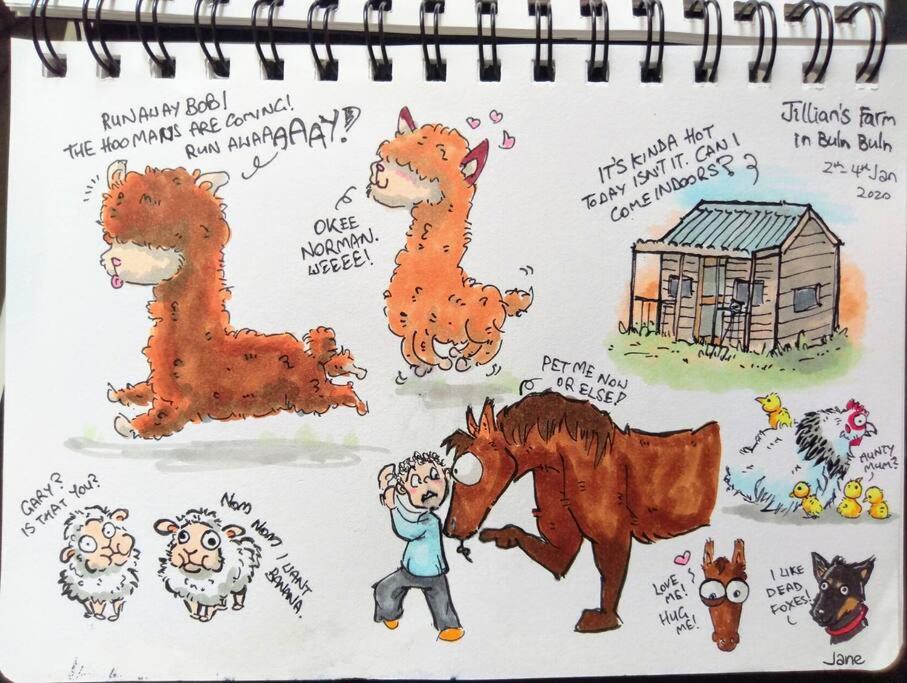 RUN AWAY BOB!
THE HOOMANS ARE COMING!
RUN AWAAAAAAY!
OKEE
NORMAN.
WEEEE!
IT'S KINDA HOT
TODAY ISN'T IT. CAN I
COME INDOORS?
Jillian's Farm
in Buln Buln
2nd - 4th Jan
2020
PET ME NOW
OR ELSE!
AUNTY
MUM?
GARY?
IS THAT YOU?
NOM NOM I WANT
BANANA.
LOVE
ME!
HUG
ME!
I LIKE
DEAD
FOXES!
Jane